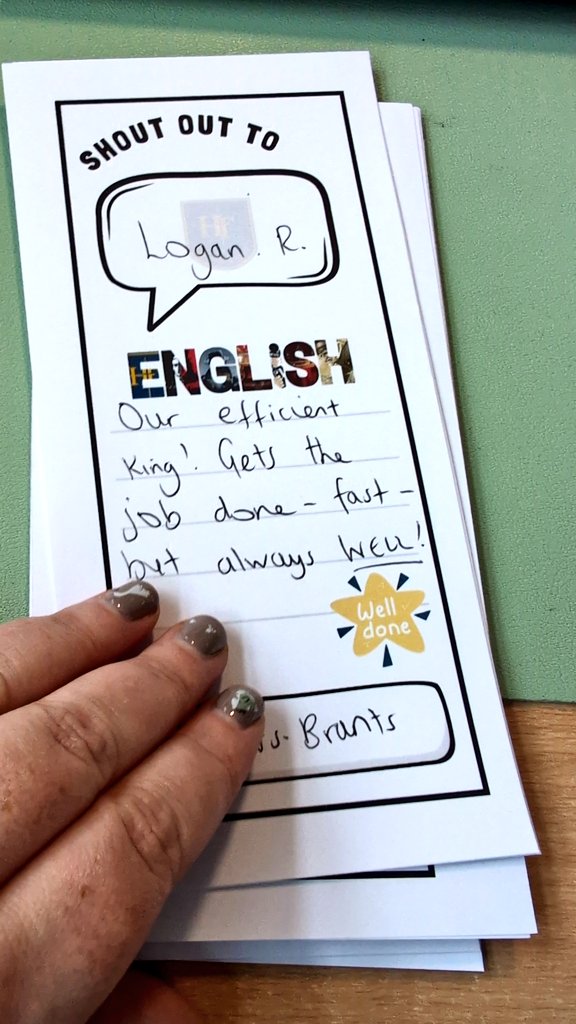 SHOUT OUT TO
HF
Logan. R.
ENGLISH
Our efficient
King! Gets the
job done - fast -
but always WELL!
Well
done
Brants